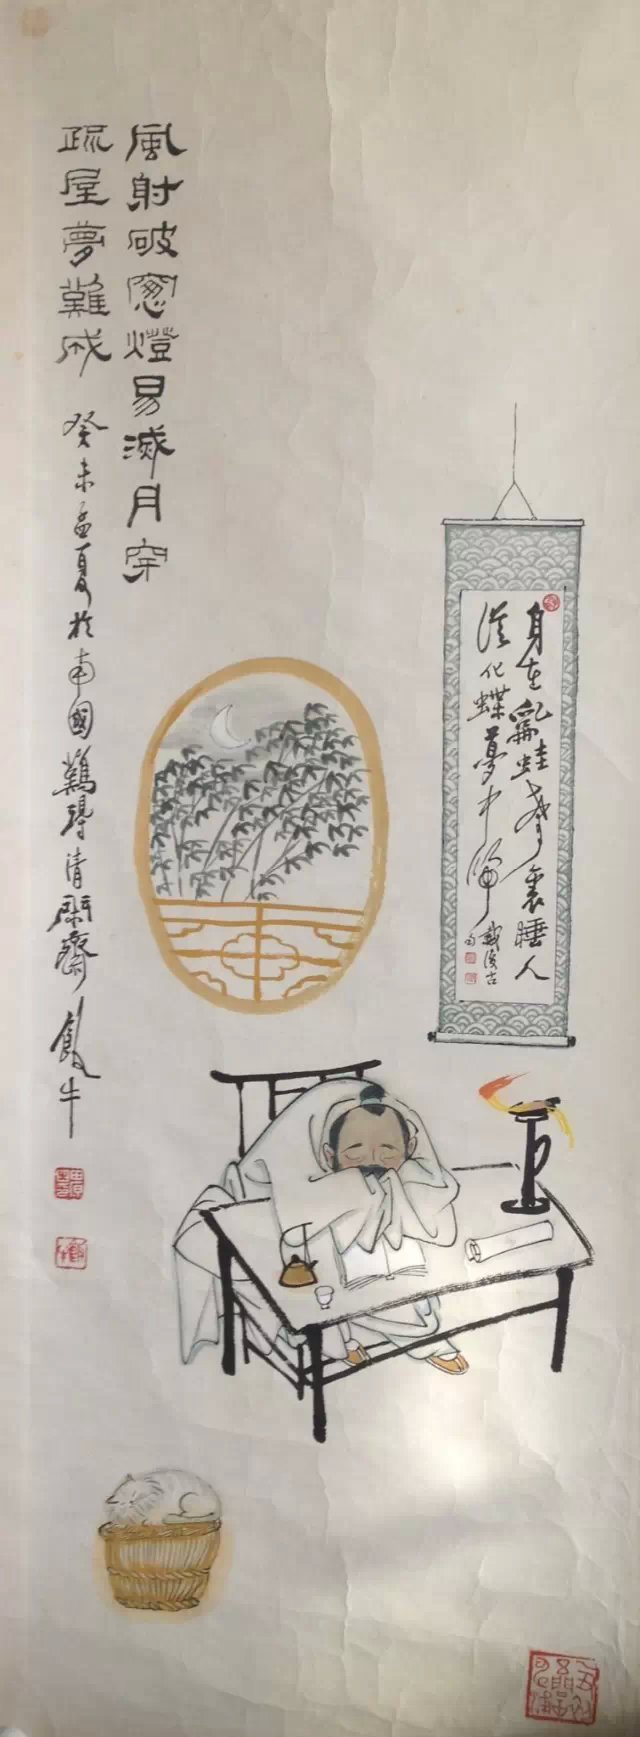 風射破窻燈易滅月穿
疏屋夢難成
癸未孟夏於南國清閑齋飲牛
身在亂蛙聲裏睡人
從化蝶夢中歸
戴復古
句